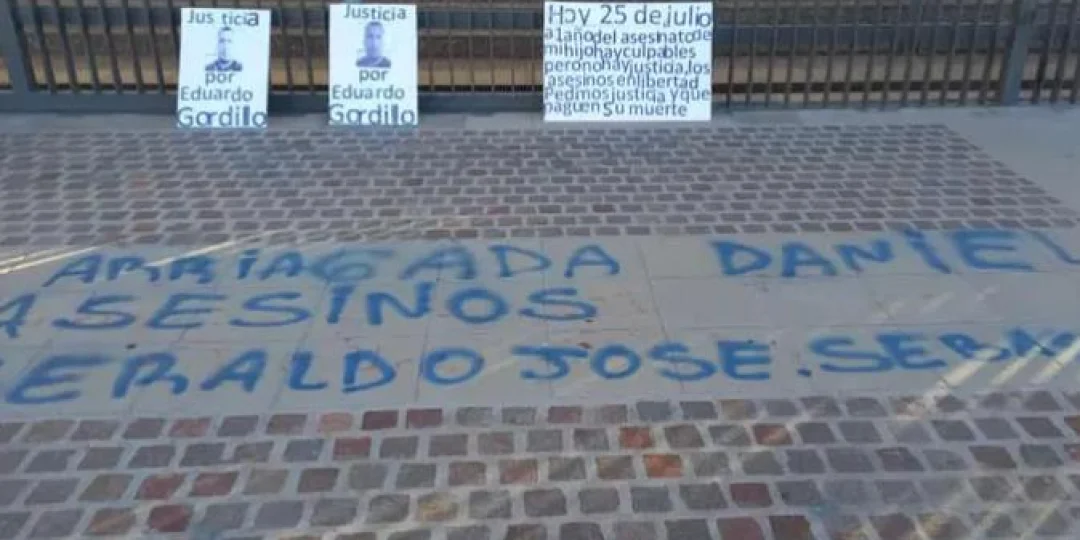 Justicia
por
Eduardo
Gordillo
Justicia
por
Eduardo
Gordillo
Hoy 25 de julio
a 1 año del asesinato de
mi hijo hay culpables
pero no hay justicia, los
asesinos en libertad
Pedimos justicia y que
paguen su muerte
ARRIAGADA DANIEL
ASESINOS
GERALDO JOSE. SEBAS